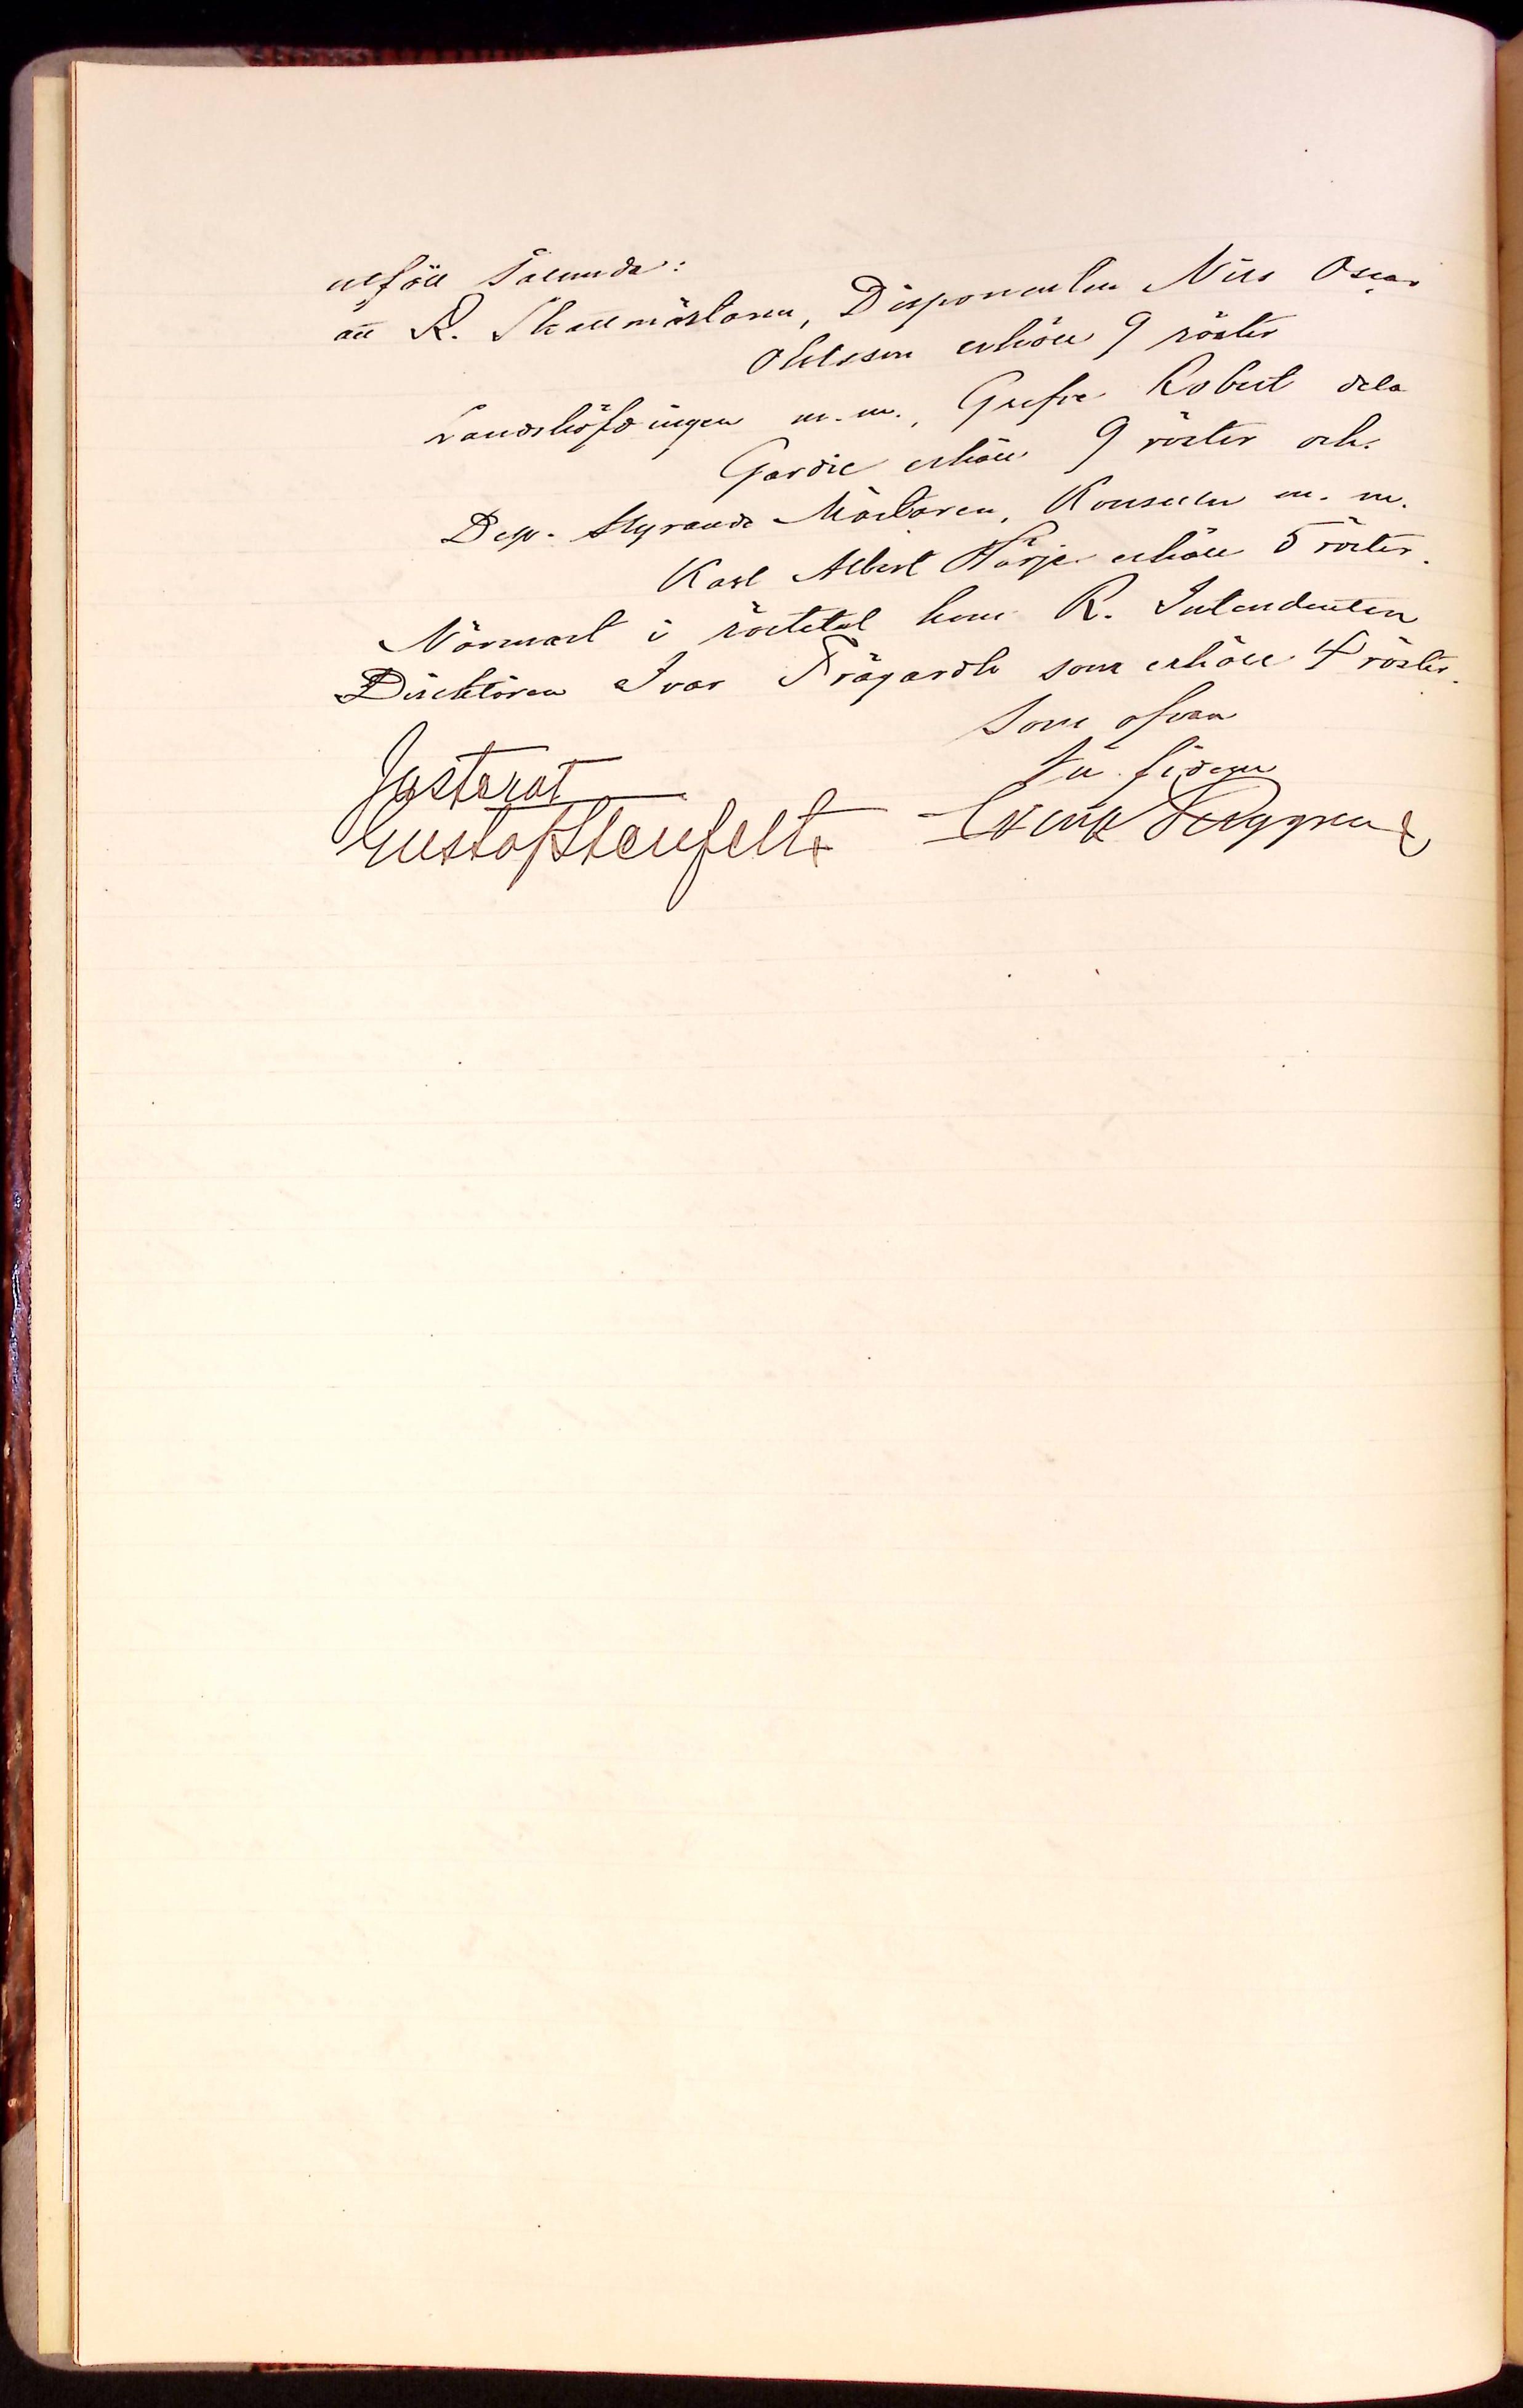 utföll sålunda:
att R. Skattmästaren, Disponenten Nils Oscar
Ohlsson erhöll 9 röster
Landshöfdingen m.m., Grefve Robert dela
Gardie erhöll 9 röster och
Dep. Styrande Mästaren, Konsuln m. m.
Karl Albert Härje erhöll 5 röster.
Närmast i röstetal kom R. Intendenten
Direktören Ivar Trägardh som erhöll 4 röster.
Som ofvan
In fidem
Justerat
Gustaf Stenfelt
Berggren